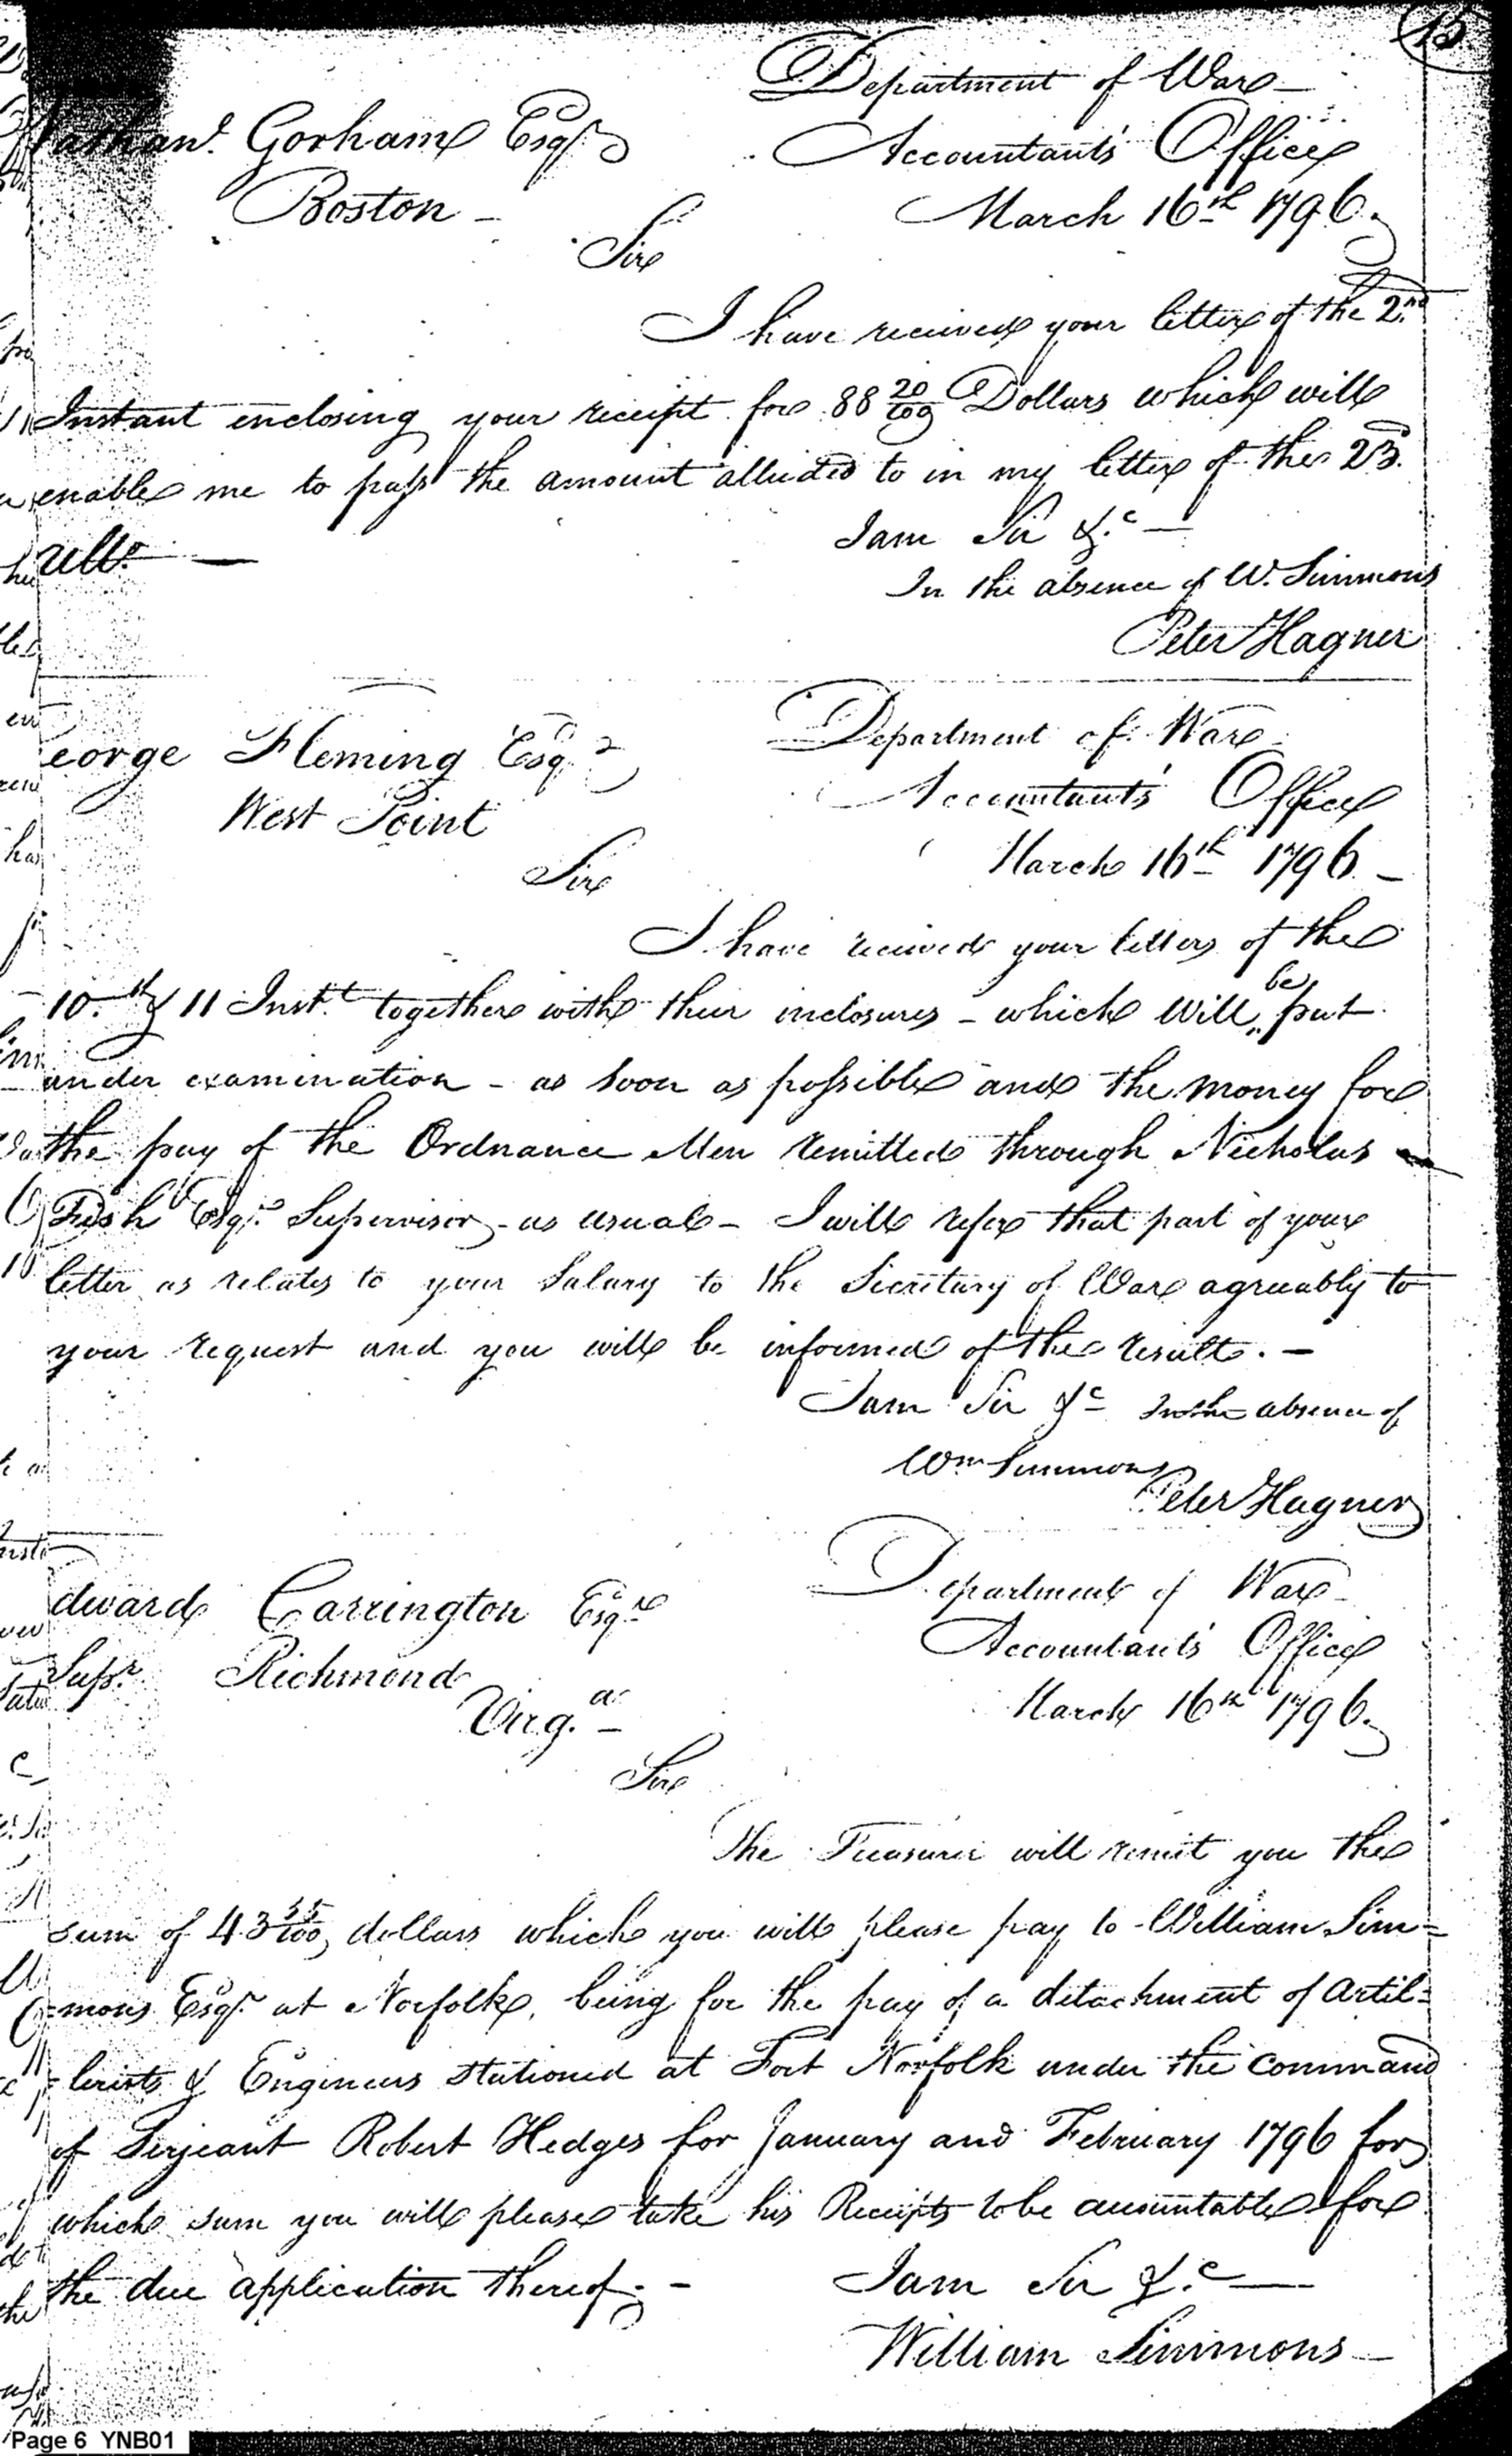 15
Department of War
Nathanl. Gorham Esqr.
Accountants Office
Boston -
March 16th 1796.
Sir
I have received your letter of the 2nd.
Instant enclosing your receipt for 88 20/100 Dollars which will
enable me to pass the amount alluded to in my letter of the 23d.
ullto. —
I am Sir &.c —
In the absence of W. Simmons
Peter Hagner
Department of War
eorge Fleming Esqr
Accountants Office
West Point
March 16th 1796 -
Sir
I have received your letters of the
10.th & 11 Inst.t together with their inclosures - which will be put
under examination - as soon as possible and the money for
the pay of the Ordnance Men remitted through Nicholas
Fish Esqr. Supervisor - as usual - I will refer that part of your
letter as relates to your Salary to the Secretary of War agreeably to
your request and you will be informed of the result. -
I am Sir &c In the absence of
Wm Simmons
Peter Hagner
Department of War
dward Carrington Esqr
Accountants Office
Supr. Richmond
March 16th 1796.
Virg.a -
Sir
The Treasurer will remit you the
sum of 43 35/100 dollars which you will please pay to William Sim=
=mons Esqr. at Norfolk, being for the pay of a detachment of Artil=
=lerists & Engineers stationed at Fort Norfolk under the command
of Serjeant Robert Hedges for January and February 1796 for
which sum you will please take his Receipts to be accountable for
the due application thereof. -
I am Sir &.c —
William Simmons -
Page 6 YNB01